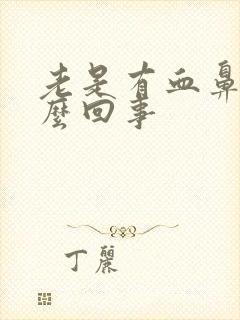 老是有血鼻
麼回事
丁麗